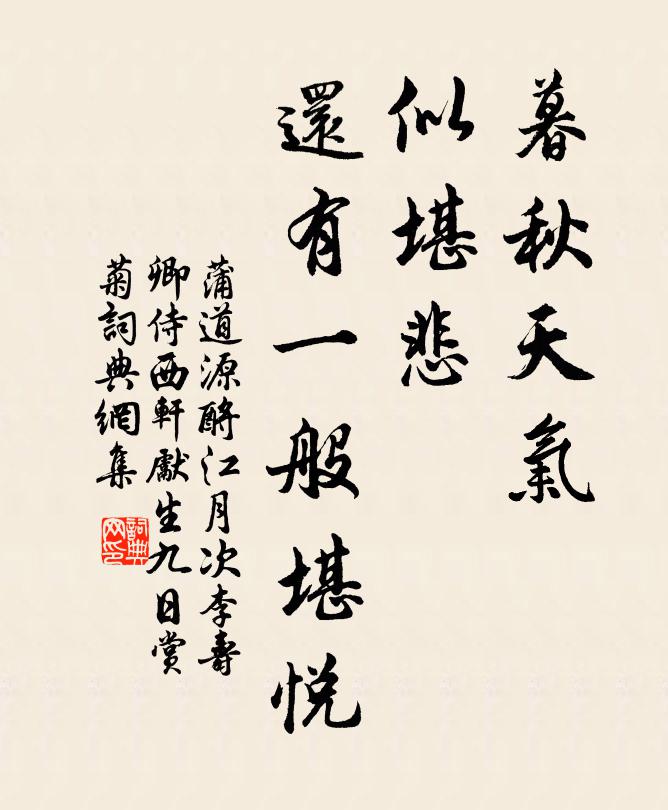 暮秋天氣
似堪悲
還有一般堪悅
蒲道源酹江月次李壽
卿侍西軒獻生九日賞
菊詞典網集
詞典網印